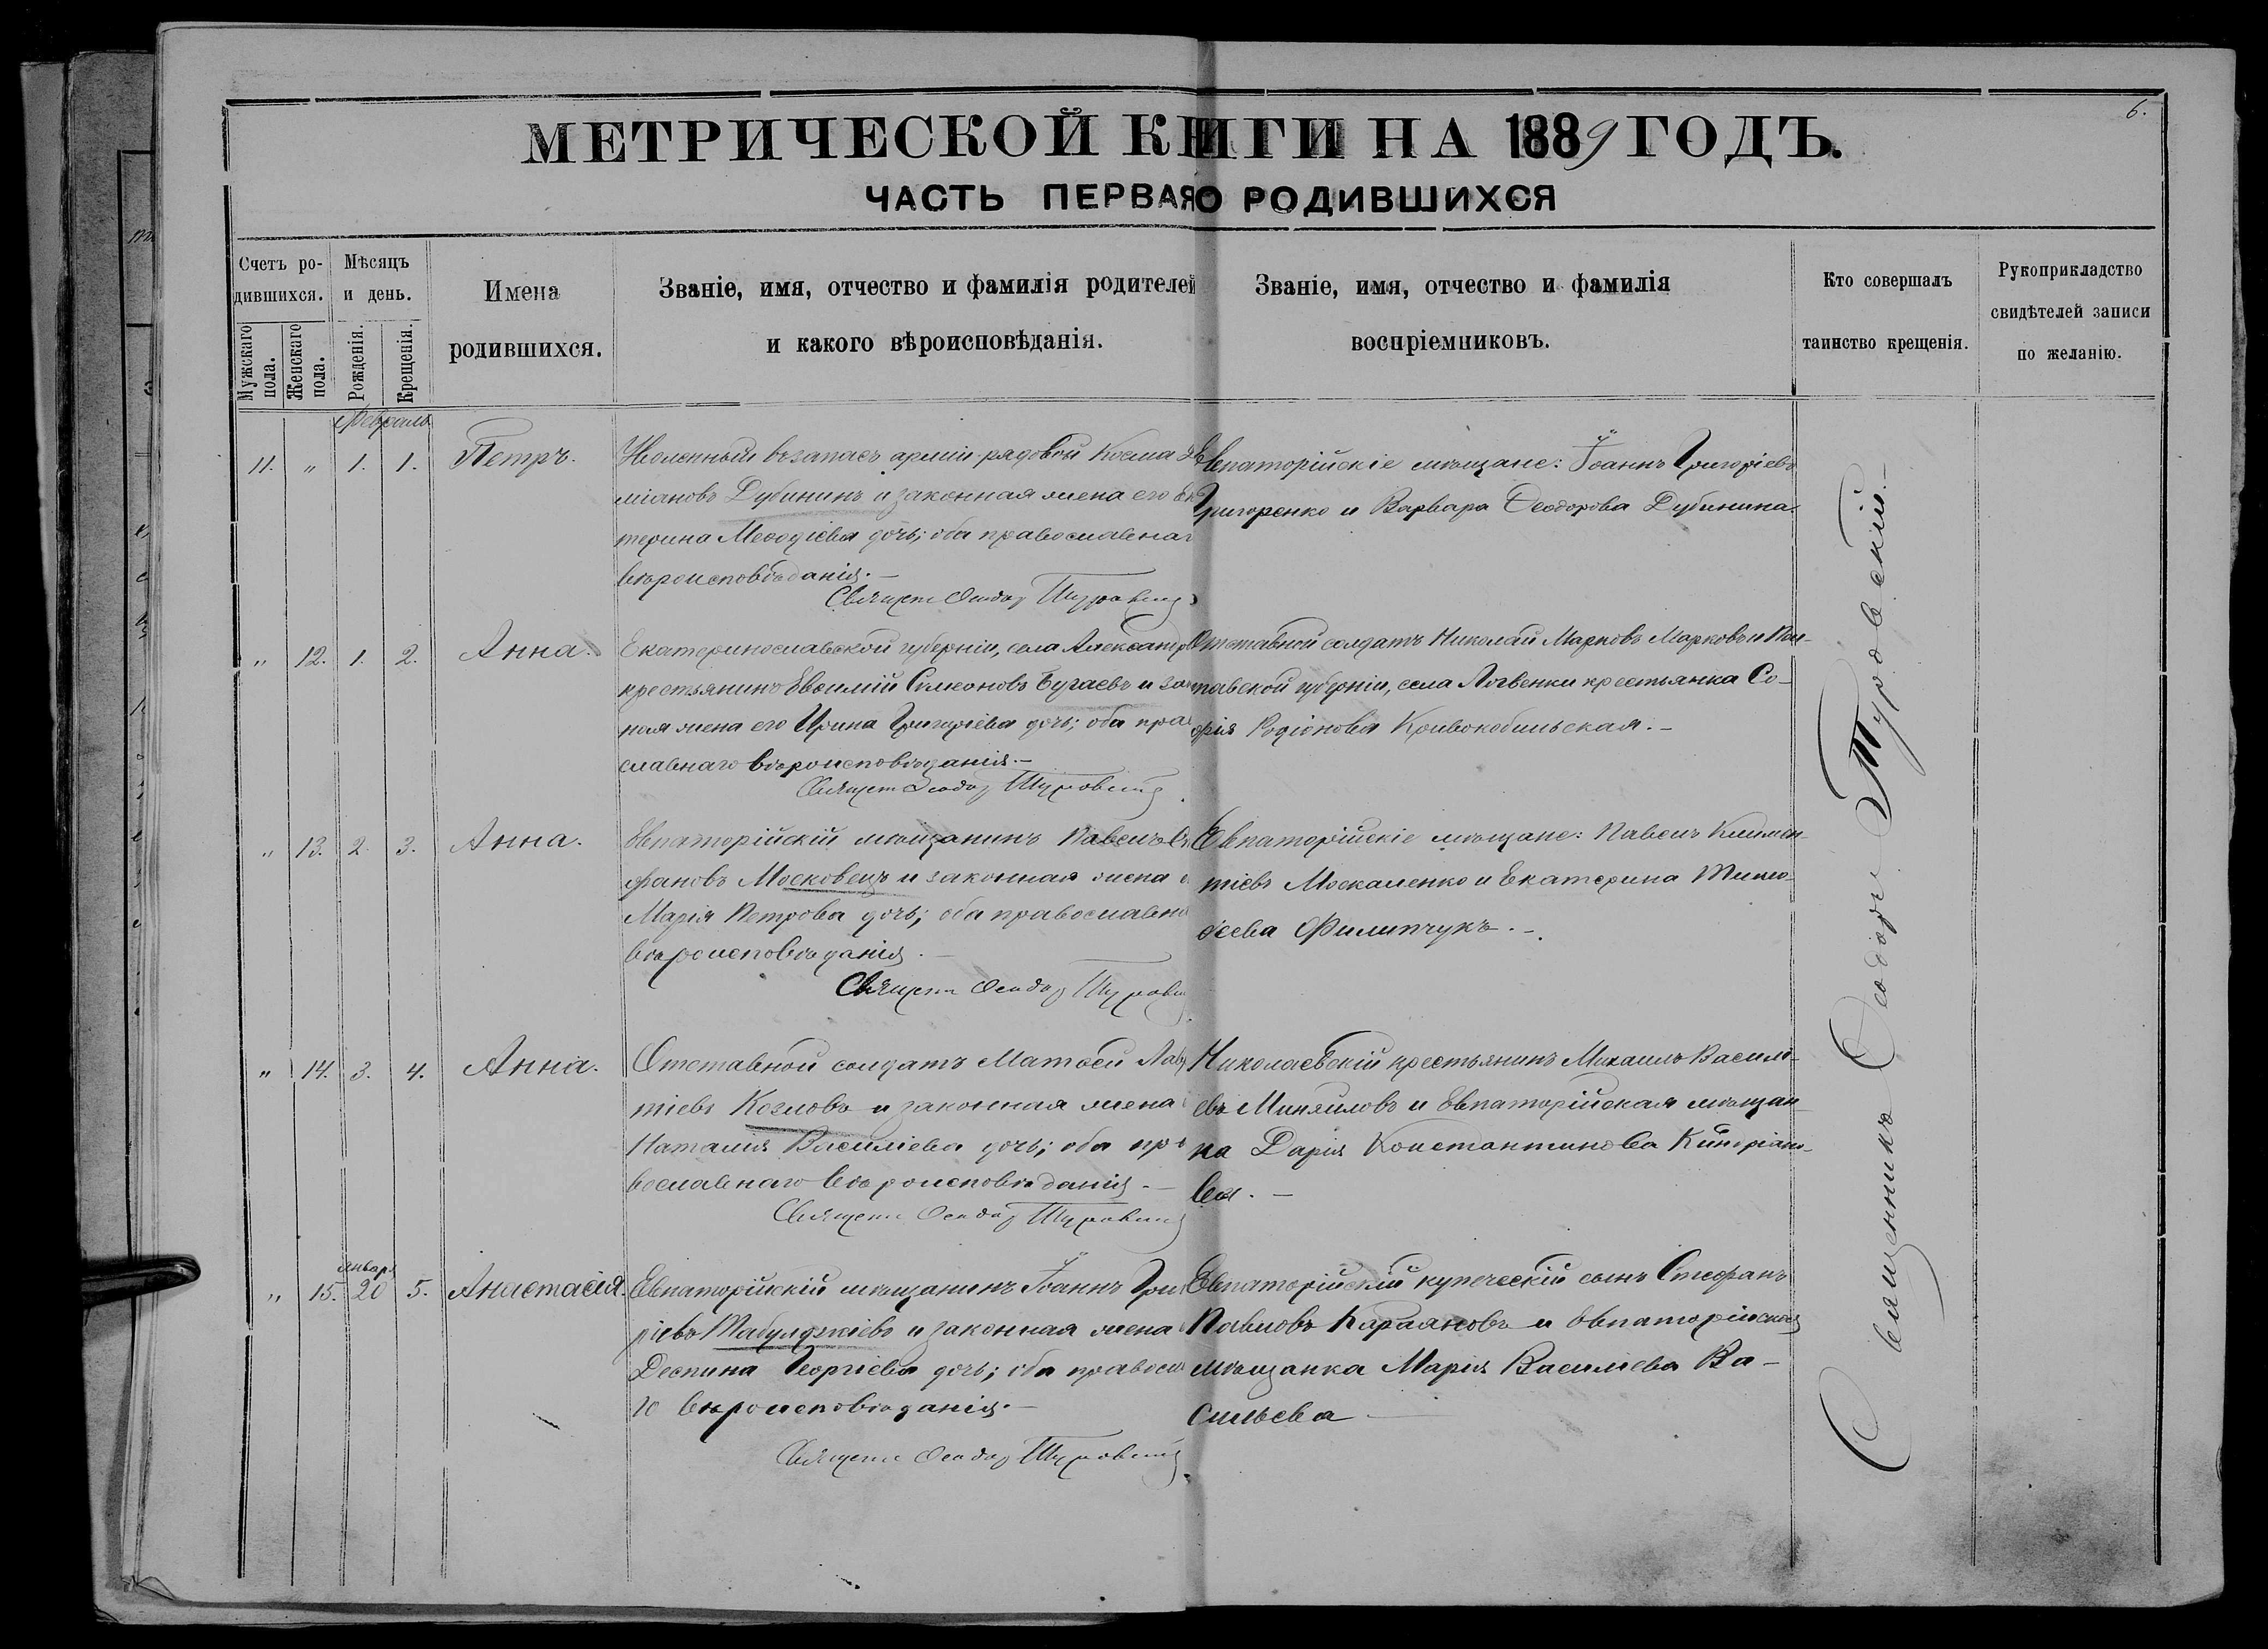 6.
МЕТРИЧЕСКОЙ КНИГИ НА 1889 ГОДЪ.
ЧАСТЬ ПЕРВАЯ О РОДИВШИХСЯ
Счетъ ро-
дившихся.
Мужскаго пола.
Женскаго пола.
Мѣсяцъ
и день.
Рожденія.
Крещенія.
Имена
родившихся.
Званіе, имя, отчество и фамилія родителей
и какого вѣроисповѣданія.
Званіе, имя, отчество и фамилія
воспріемниковъ.
Кто совершалъ
таинство крещенія.
Рукоприкладство
свидѣтелей записи
по желанію.
Февраль
11. " 1. 1. Петръ.
Уволенный въ запасъ арміи рядовой Косма
міановъ Дубининъ и законная жена его Ека
терина Меѳодіева дочь; оба православнаг
вѣроисповѣданія.-
Священ Ѳеодор Туровскій
Евпаторійскіе мѣщане: Іоаннъ Григоріевъ
Григоренко и Варвара Ѳеодорова Дубинина.
" 12. 1. 2. Анна.
Екатеринославской губерніи, села Александр
крестьянинъ Евѳимій Симеоновъ Бугаевъ и зак
ная жена его Ирина Григоріева дочь; оба пра
славнаго вѣроисповѣданія.-
Священ Ѳеодор Туровскій
Отставной солдатъ Николай Марковъ Марковъ и Пол-
тавской губерніи, села Логвенки крестьянка Со-
фія Родіонова Кривокобыльская.-
" 13. 2. 3. Анна.
Евпаторійскій мѣщанинъ Павелъ Ст
фановъ Московецъ и законная жена е
Марія Петрова дочь; оба православна
вѣроисповѣданія.-
Священ Ѳеодор Туровскій
Евпаторійскіе мѣщане: Павелъ Климен-
тіевъ Москаленко и Екатерина Тимо-
ѳеева Филипчукъ.-
" 14. 3. 4. Анна.
Отставной солдатъ Матѳей Лавр
тіевъ Козловъ и законная жена
Наталія Василіева дочь; оба пра
вославнаго вѣроисповѣданія.-
Священ Ѳеодор Туровскій
Николаевскій крестьянинъ Михаилъ Василі-
евъ Миняиловъ и Евпаторійская мѣщан-
ка Дарія Константинова Кипріано-
ва.-
Января
" 15. 20 5. Анастасія.
Евпаторійскій мѣщанинъ Іоаннъ Григ
ріевъ Табулджіевъ и законная жена
Деспина Георгіева дочь; оба правосл
го вѣроисповѣданія.-
Священ Ѳеодор Туровскій
Евпаторійскій купеческій сынъ Стефанъ
Павловъ Караяновъ и Евпаторійская
мѣщанка Марія Василіева Ва-
сильева
Священникъ Ѳеодоръ Туровскій.-